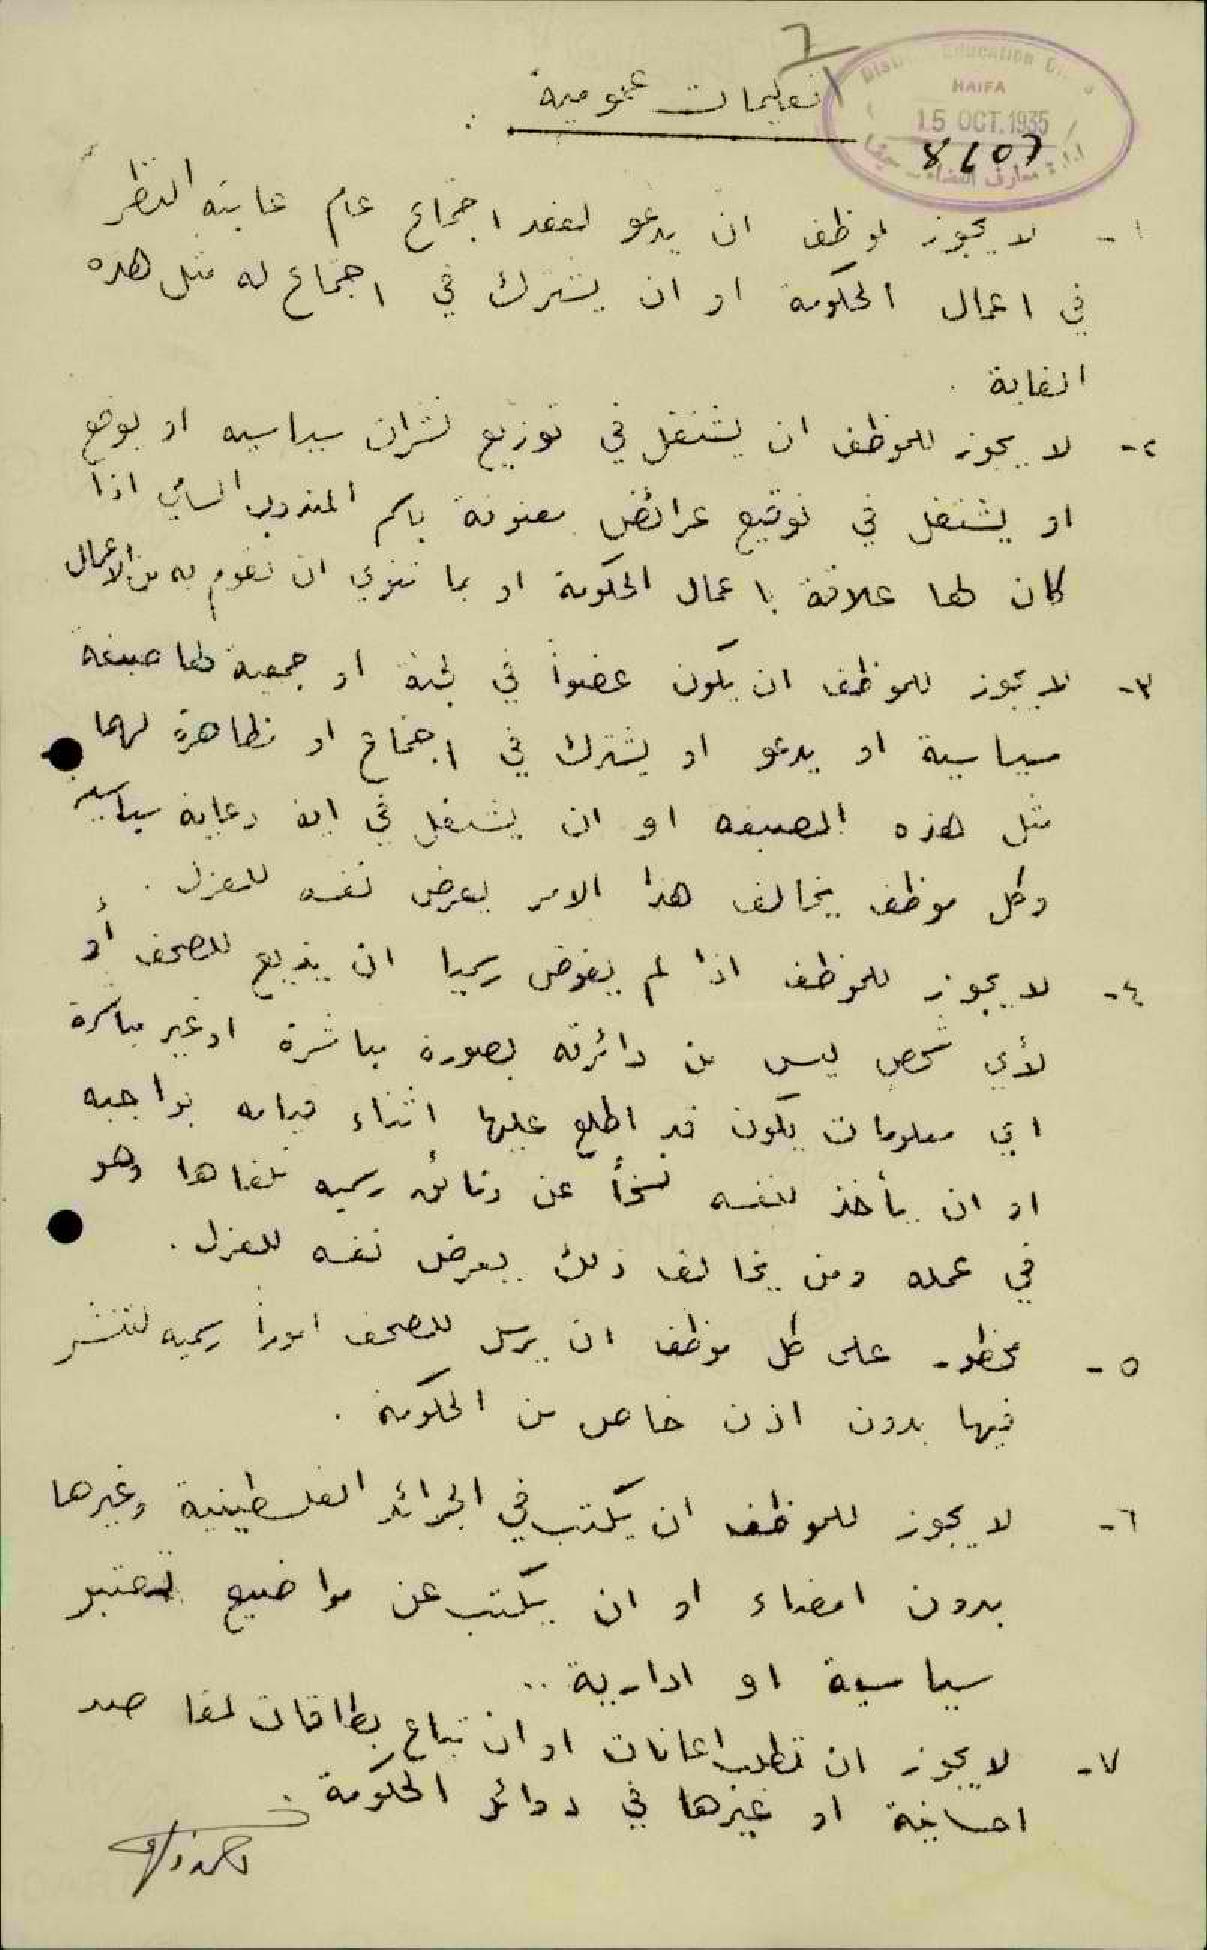 تعليمات عمومية
District Education Office
HAIFA
15 OCT. 1935
ادارة معارف القضاء - حيفا
١- لا يجوز لموظف ان يدعو لعقد اجتماع عام غايته النظر
في اعمال الحكومة او ان يشترك في اجتماع له مثل هذه
الغاية .
٢- لا يجوز للموظف ان يشتغل في توزيع نشرات سياسيه او يوقع
او يشتغل في توقيع عرائض معنونة باسم المندوب السامي اذا
كان لها علاقة باعمال الحكومة او بما تنوي ان تقوم به من الاعمال
٣- لا يجوز للموظف ان يكون عضواً في لجنة او جمعية لها صبغة
سياسية او يدعو او يشترك في اجتماع او تظاهرة لهما
مثل هذه الصبغه او ان يشتغل في اية دعاية سياسيه
وكل موظف يخالف هذا الامر يعرض نفسه للعزل .
٤- لا يجوز للموظف اذا لم يفوض رسميا ان يذيع للصحف أو
لأي شخص ليس من دائرته بصورة مباشرة او غير مباشرة
اي معلومات يكون قد اطلع عليها اثناء قيامه بواجبه
او ان يأخذ لنفسه نسخاً عن وثائق رسميه تلقاها وهو
في عمله ومن يخالف ذلك يعرض نفسه للعزل .
٥- محظور على كل موظف ان يرسل للصحف اموراً رسميه لتنشر
فيها بدون اذن خاص من الحكومة .
٦- لا يجوز للموظف ان يكتب في الجرائد الفلسطينية وغيرها
بدون امضاء او ان يكتب عن مواضيع تعتبر
سياسية او ادارية ..
٧- لا يجوز ان تطلب اعانات او ان تباع بطاقات لمقاصد
احسانية او غيرها في دوائر الحكومة .